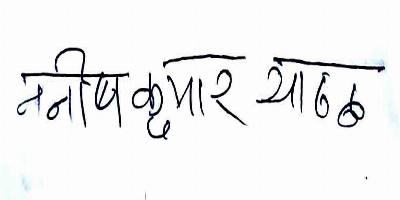 मनीष कुमार याठक